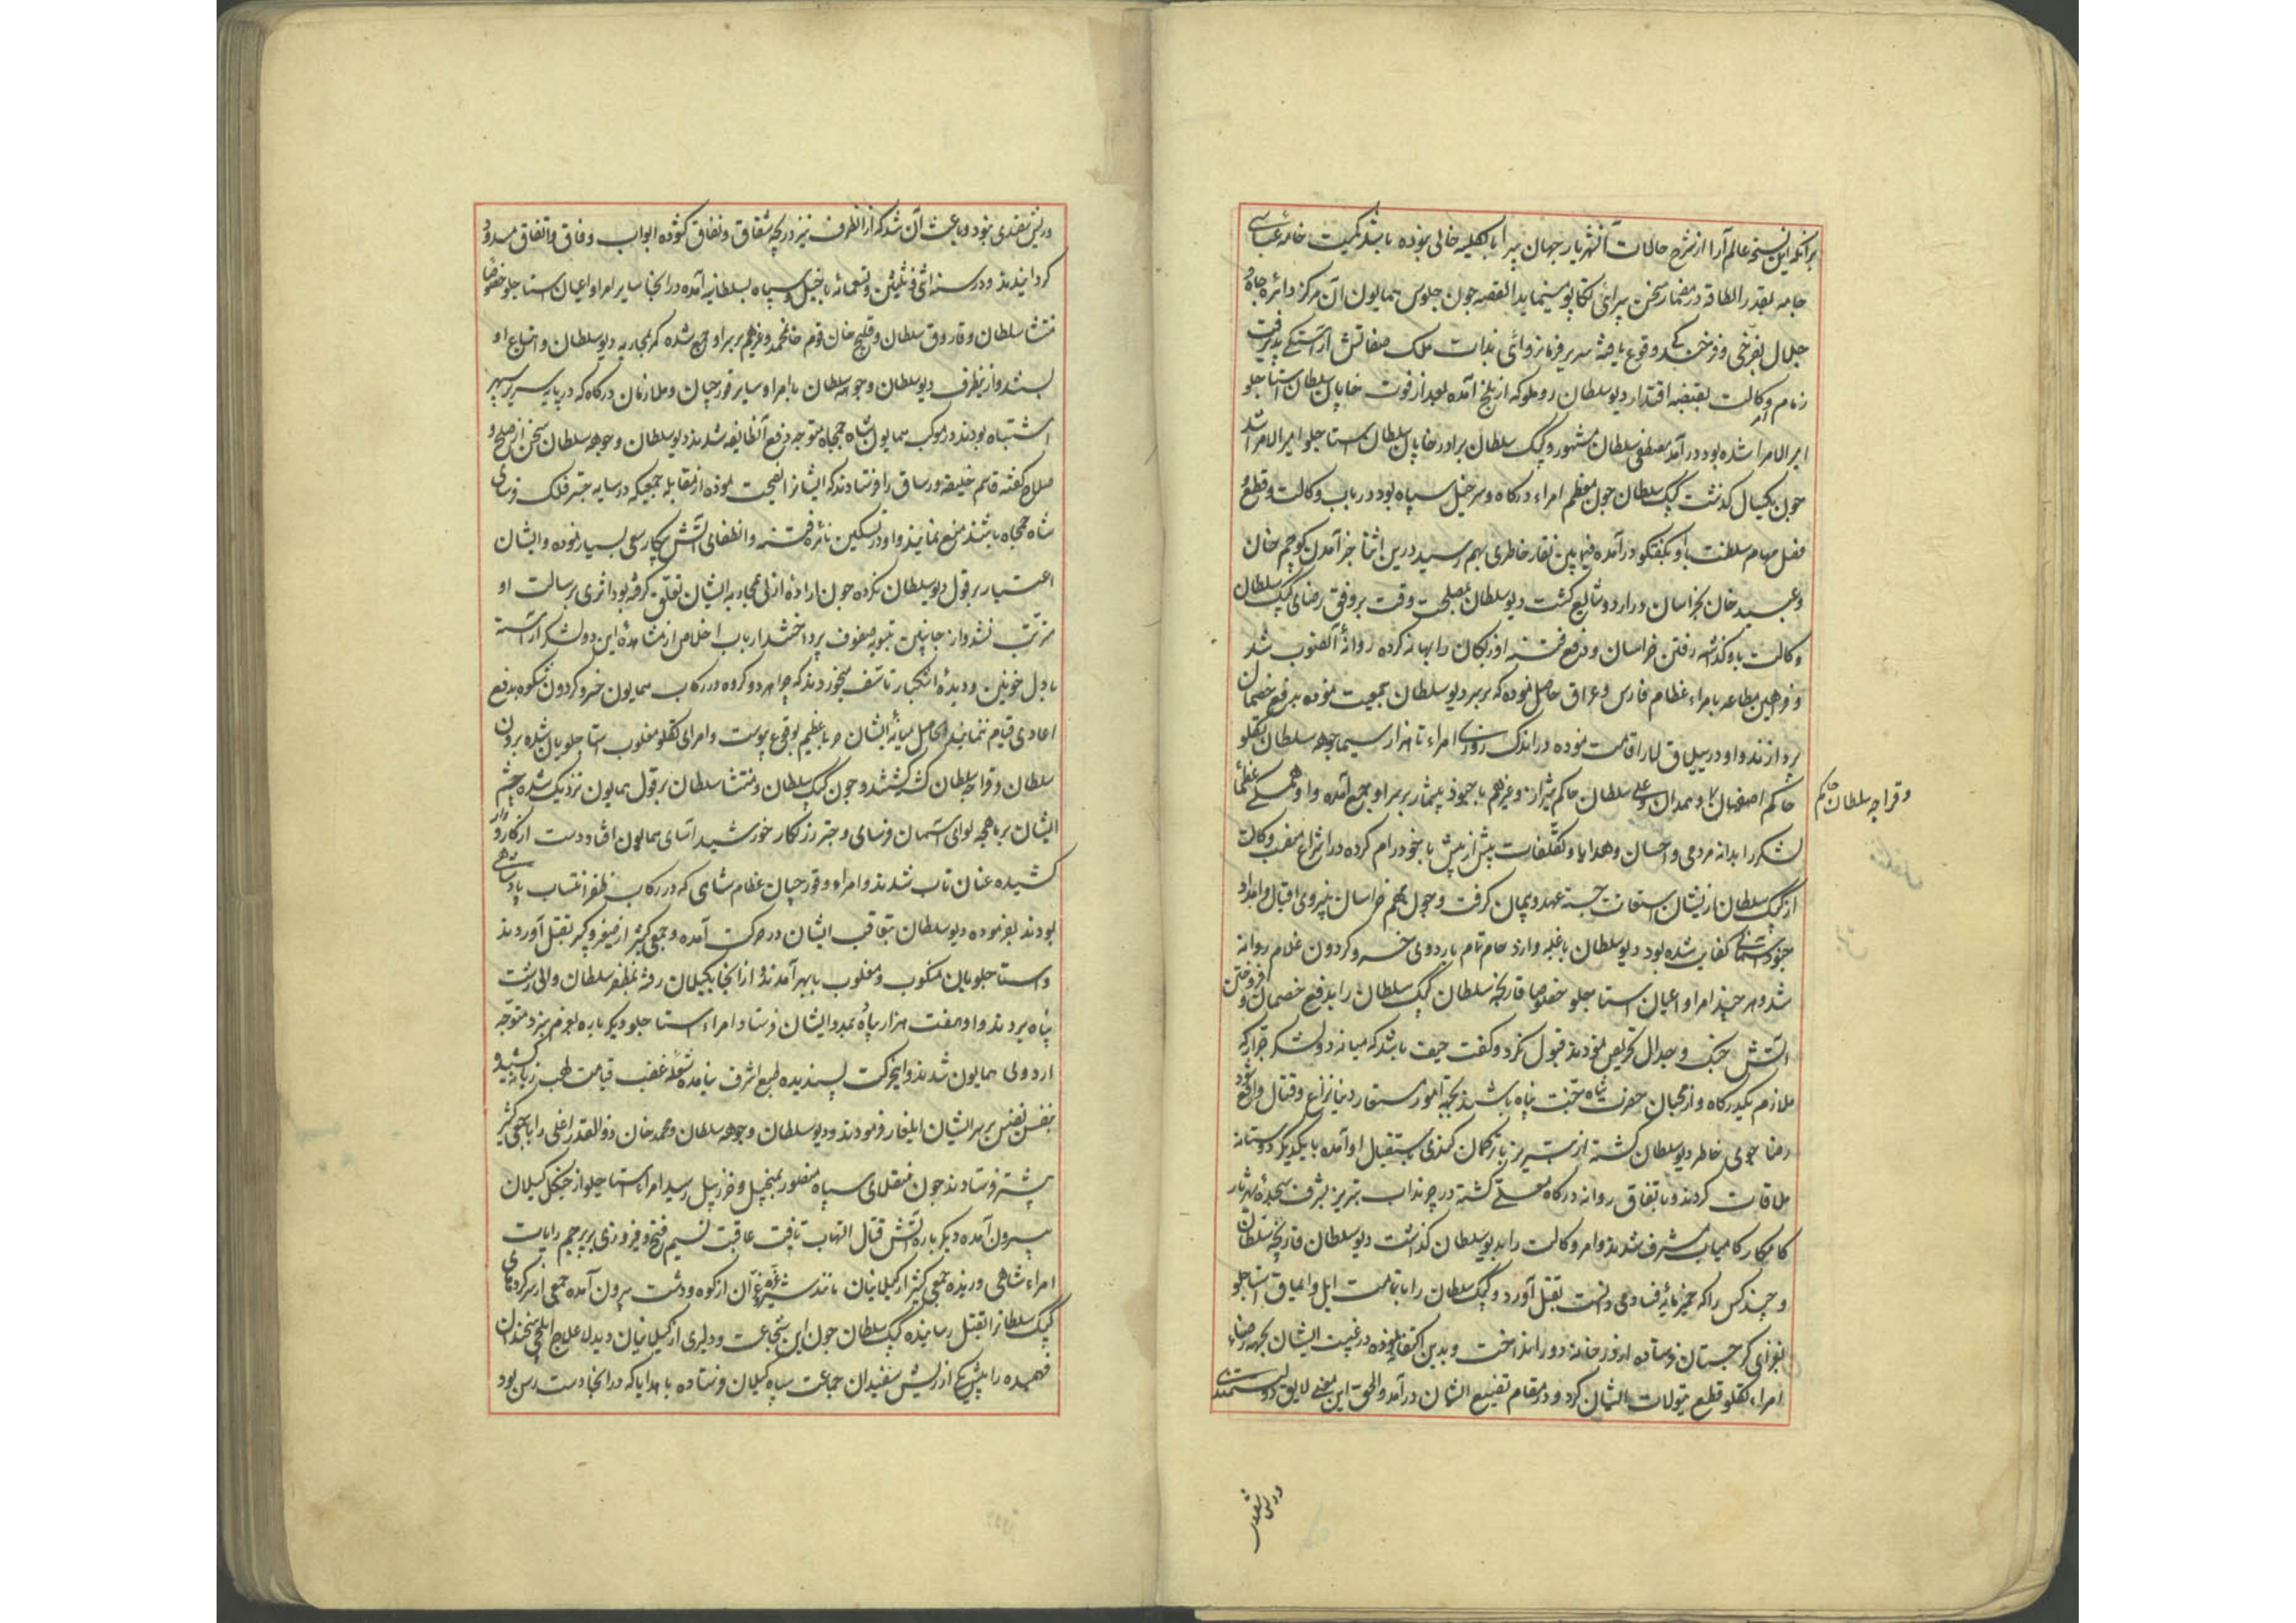 برانکه این نسخهٔ عالم آرا از شرح حالات آن شهریار جهان پیرا بالکلیه خالی نبوده باشد کمیت خامه عباسی
جامه بقدر الطاقه در مضمار سخن پیرائی تکاپو مینماید القصه چون جلوس همایون آن مرکز دائره جاه و
جلال بفرخی و فرخندگی وقوع یافته سریر فرمانروائی بذات ملک صفاتش آراستگی پذیرفت
زمام وکالت بقبضه اقتدار دیو سلطان روملو که از بلخ آمده بعد از فوت خایان سلطان استاجلو
امیر الامرا شده بود در آمد مصطفی سلطان مشهور بکپک سلطان برادر خایان سلطان استاجلو امیر الامرا شد
چون یکسال کذشت کپک سلطان چون معظم امراء درکاه و سرخیل سپاه بود در باب وکالت و قطع و
فصل مهام سلطنت با او بکفتکو در آمده فیمابین نقار خاطری بهم رسید درین اثنا خبر آمدن کوچم خان
و عبید خان بخراسان در اردو شایع کشت دیو سلطان بمصلحت وقت بر وفق رضای کپک سلطان
وکالت باو کذاشته رفتن خراسان و دفع فتنه اوزبکان را بهانه کرده روانهٔ آنصوب شد
و فرامین مطاعه بامراء عظام فارس و عراق حاصل نموده که بر سر دیو سلطان جمعیت نموده بدفع خصمان
پردازند و او در ییلاق لار اقامت نموده در اندک روزی امراء نامدار سیما جوهه سلطان تکلو
حاکم اصفهان و همدان و علی سلطان حاکم شیراز و غیرهم با جنود بیشمار بر سر او جمع آمده و او همکی عظمأ
و قراجه سلطان حاکم
لشکر را بدانه مردمی و احسان و هدایا و تکلفات بیش از پیش با خود رام کرده در انتزاع منصب وکالت
از کپک سلطان ازیشان استعانت جسته عهد و پیمان کرفت و چون مهم خراسان بنیروی اقبال و امداد
جنود آسمانی کفایت شده بود دیو سلطان با غلبه و ازدحام تام باردوی خسرو کردون غلام روانه
شد و هر چند امرا و اعیان استاجلو خصوصا قارنجه سلطان کپک سلطان را بدفع خصمان و افروختن
آتش جنک و جدال تحریص نمودند قبول نکرد و کفت حیف باشد که میانه دو لشکر جرار که
ملازم یکدرکاه و از محبان حضرت شاه نجف پناه باشند بجهة امور مستعار دنیا نزاع و قتال واقع شود
رضا جوی خاطر دیو سلطان کشته از تبریز تا ترکمان کندی باستقبال او آمده با یکدیکر دوستانه
ملاقات کردند و باتفاق روانه درکاه معلی کشته در چرنداب تبریز بشرف سجدهٔ شهریار
کامکار کامیاب مشرف شدند و امر وکالت را بدیو سلطان کذاشت دیو سلطان قارنجه سلطان
و چند کس را که خمیرمایه فساد می دانست بقتل آورد و کپک سلطان را با تمامت ایل و اویماق استاجلو
بغزای کرجستان فرستاده از در خانه دور انداخت و بدین اکتفا ننموده در غیبت ایشان بجهه رضاء
امراء تکلو قطع تیولات ایشان کرد و در مقام تضییع ایشان در آمد و الحق این معنی لایق دولتمندی
و ریش سفیدی
و ریش سفیدی نبود و باعث آن شد که از انطرف نیز دریچه شقاق و نفاق کشوده ابواب وفاق و اتفاق مسدود
کردانیدند و در سنه اثنی و ثلثین و تسعمائه با خیل و سپاه بسلطانیه آمده در انجا سایر امرا و اعیان استاجلو خصوصا
منتشا سلطان و قاروق سلطان و قلیچ خان قوم خان محمد و غیرهم بر سر او جمع شده کمر بمحاربه دیو سلطان و اتباع او
بستند و از ینطرف دیو سلطان و جوهه سلطان با امرا و سایر قورچیان و ملازمان درکاه که در پایه سریر سپهر
اشتباه بودند در موکب همایون شاه جمجاه متوجه دفع آنطایفه شدند دیو سلطان و جوهه سلطان سخن از صلح و
صلاح کفته قاسم خلیفه ورساق را فرستادند که ایشانرا نصیحت نموده از مقابله جمعیکه در سایه چتر فلک فرسای
شاه جمجاه باشند منع نمایند و او در تسکین نائره فتنه و انطفای آتش پیکار سعی بسیار نموده و ایشان
اعتبار بر قول دیو سلطان نکرده چون اراده ازلی بمجادیه ایشان تعلق کرفته بود اثری بر رسالت او
مترتب نشد و از جانبین تسویه صفوف پرداختند ارباب اخلاص از مشاهدهٔ این دو لشکر آراسته
با دل خونین و دیدهٔ اشکبار تاسف میخوردند که چرا هر دو کروه در رکاب همایون خسرو کردون شکوه بدفع
اعادی قیام ننمایند الحاصل میانهٔ ایشان حربا عظیم بوقوع پیوست و امرای تکلو مغلوب استاجلویان شده برون
سلطان و قراجه سلطان کشته کشتند و چون کپک سلطان و منتشا سلطان بر قول همایون نزدیک شده چشم
ایشان بر ماهچه لوای آسمان فرسای و چتر زرنکار خورشید آسای همایون افتاد دست از کارزار
کشیده عنان تاب شدند و امراء و قورچیان عظام شاهی که در رکاب ظفر انتساب پادشاهی
بودند بفرموده دیو سلطان بتعاقب ایشان در حرکت آمده و جمعی کثیر از صغیر و کبیر بقتل آوردند
و استاجلویان منکوب و مغلوب بابهر آمدند و از انجا بکیلان رفته بمظفر سلطان والی رشت
پناه بردند و او هفت هزار پیاده بمدد ایشان فرستاد امراء استاجلو دیکرباره بعزم نبرد متوجه
اردوی همایون شدند و اینحرکت پسندیده طبع اشرف نیامده شعله غضب قیامت لهب زبانه کشید و
بنفس نفیس بر سر ایشان ایلغار فرمودند و دیو سلطان و جوهه سلطان و محمد خان ذوالقدر اغلی را با جمعی کثیر
پیشتر فرستادند چون منقلای سپاه منصور بمنجیل و خرزویل رسید امراء استاجلو از جنکل کیلان
بیرون آمده دیکرباره آتش قتال التهاب یافت عاقبت نسیم فتح و فیروزی بر پرچم رایات
امراء شاهی وزیده جمعی کثیر از کیلانیان مانند شیر غران از کوه و دشت بیرون آمده جمعی از سرکردهای
کپک سلطانرا بقتل رسانیده کپک سلطان چون این شجاعت و دلیری از کیلانیان دید لاعلاج ایلچی سخندان
فهمیده را پیش یکی از ریش سفیدان جماعت سپاه کیلان فرستاده با هدایا که در انجا دست رس بود